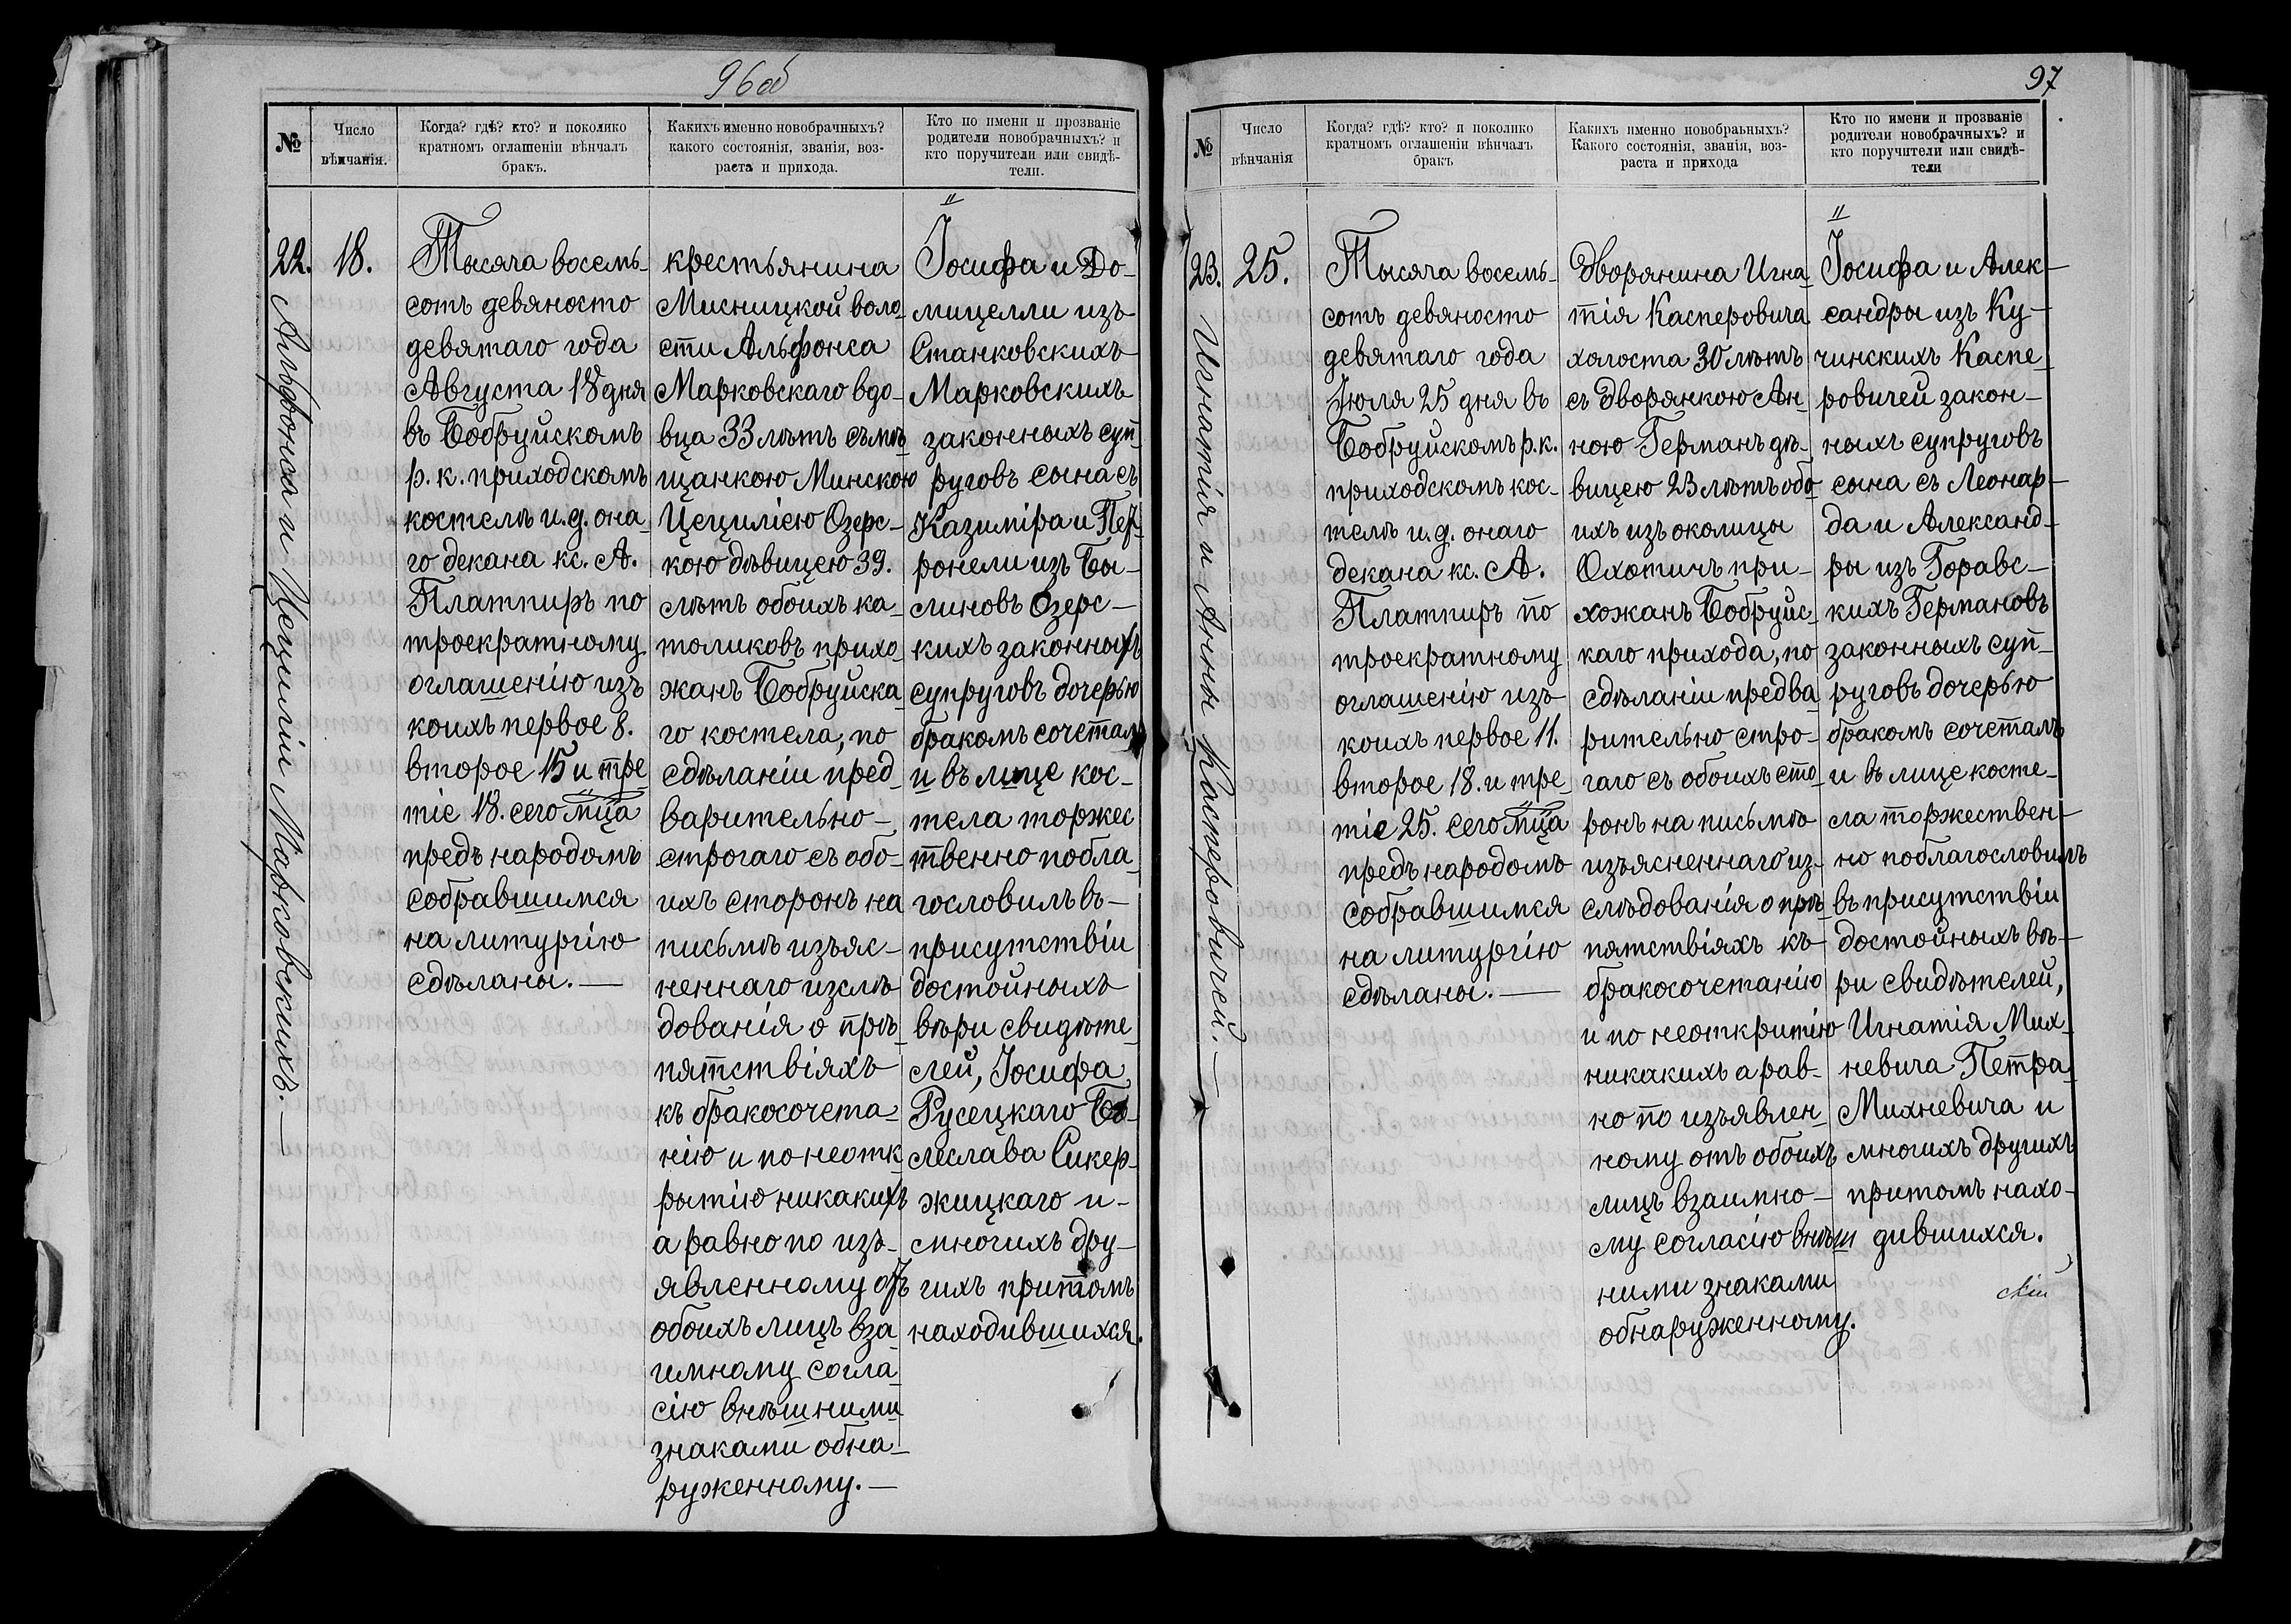 96об
№
Число
вѣнчанія.
Когда? гдѣ? кто? и поколико
кратномъ оглашеніи вѣнчалъ
бракъ.
Какихъ именно новобрачныхъ?
какого состоянія, званія, воз-
раста и прихода.
Кто по имени и прозваніе
родители новобрачныхъ? и
кто поручители или свидѣ-
тели.
22.
Альфонса и Цециліи Марковскихъ.—
18.
Тысяча восемь-
сотъ девяносто
девятаго года
Августа 18 дня
въ Бобруйскомъ
р. к. приходскомъ
костелѣ и. д. она-
го декана кс. А.
Платпиръ по
троекратному
оглашенію изъ
коихъ первое 8.
второе 15 и тре
тіе 18. сего мца
предъ народомъ
собравшимся
на литургію
сдѣланы.—
крестьянина
Мисницкой воло-
сти Альфонса
Марковскаго вдо-
вца 33 лѣтъ съ мѣ
щанкою Минскою
Цециліею Озерс-
кою дѣвицею 39.
лѣтъ обоихъ ка-
толиковъ прихо-
жанъ Бобруйска-
го костела, по
сдѣланіи пред-
варительно-
строгаго съ обо-
ихъ сторонъ на
письмѣ изъяс-
неннаго изслѣ
дованія о прѣ-
пятствіяхъ
къ бракосочета-
нію и по неотк-
рытію никакихъ
а равно по изъ-
явленному отъ
обоихъ лицъ вза
имному согла-
сію внѣшними
знаками обна-
руженному.—
Іосифа и До-
мицелли изъ
Станковскихъ
Марковскихъ
законныхъ суп-
руговъ сына съ
Казиміра и Пет-
ронели изъ Бы-
линовъ Озерс-
кихъ законныхъ
супруговъ дочерью
бракомъ сочеталъ
и въ лице кос-
тела торжес
твенно побла-
гословилъ въ-
присутствіи
достойныхъ
вѣри свидѣте-
лей, Іосифа
Русецкаго Бо-
леслава Сикер-
жицкаго и-
многихъ дру-
гихъ притомъ
находившихся.
97
№
Число
вѣнчанія
Когда? гдѣ? кто? и поколико
кратномъ оглашеніи вѣнчалъ
бракъ
Какихъ именно новобрачныхъ?
Какого состоянія, званія, воз-
раста и прихода
Кто по имени и прозваніе
родители новобрачныхъ? и
кто поручители или свидѣ-
тели
23.
Игнатія и Анны Касперовичей.—
25.
Тысяча восемь-
сотъ девяносто
девятаго года
Іюля 25 дня въ
Бобруйскомъ р. к.
приходскомъ кос-
телѣ и. д. онаго
декана кс. А.
Платпиръ по
троекратному
оглашенію изъ
коихъ первое 11.
второе 18. и тре-
тіе 25. сего мца
предъ народомъ
собравшимся
на литургію
сдѣланы.—
дворянина Игна-
тія Касперовича
холоста 30 лѣтъ
съ дворянкою Ан-
ною Германъ дѣ-
вицею 23 лѣтъ обо
ихъ изъ околицы
Охотичъ при-
хожанъ Бобруйс-
каго прихода, по
сдѣланіи предва
рительно стро-
гаго съ обоихъ сто
ронъ на письмѣ
изъясненнаго из-
слѣдованія о прѣ-
пятствіяхъ къ
бракосочетанію
и по неоткритію
никакихъ а рав-
но по изъявлен
ному отъ обоихъ
лицъ взаимно-
му согласію внѣш
ними знаками
обнаруженному.
Іосифа и Алек-
сандры изъ Ку-
чинскихъ Каспе-
ровичей закон-
ныхъ супруговъ
сына съ Леонар-
да и Александ-
ры изъ Горавс-
кихъ Германовъ
законныхъ суп-
руговъ дочерью
бракомъ сочеталъ
и въ лице косте-
ла торжествен-
но поблагословилъ
въ присутствіи
достойныхъ вѣ-
ри свидѣтелей,
Игнатія Мих-
невича Петра
Михневича и
многихъ другихъ
притомъ нахо-
дившихся.